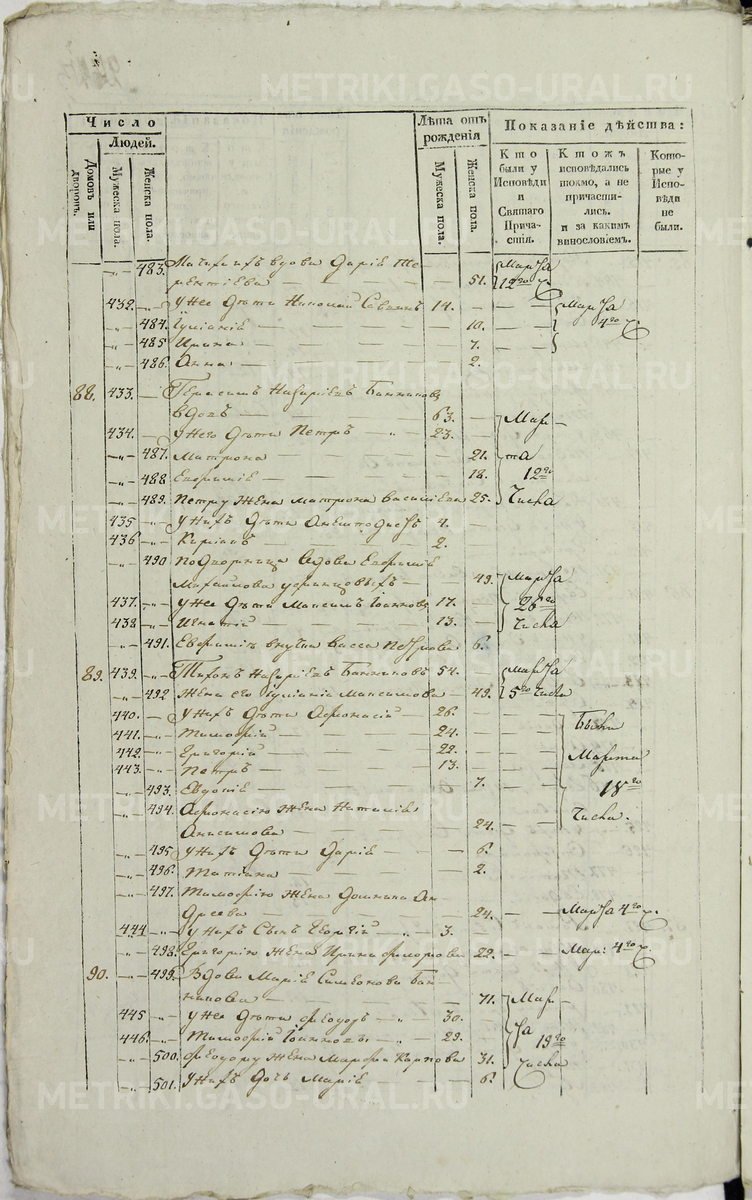 METRIKI.GASO-URAL.RU
Число
Людей.
Домовъ или дворовъ.
Мужеска пола.
Женска пола.
Лѣта отъ рожденія
Мужеска пола.
Женска пола.
Показаніе дѣйства:
Кто были у Исповѣди и Святаго Причастія.
Ктожъ исповѣдались токмо, а не причастились. и за какимъ винословіемъ.
Которые у Исповѣди не были.
483. вдова Дарія Те-
рентіева — 51. Марта 12го ч.
432. у нее дѣти Николай 14. Марта
484. Іуліанія — 10. 4го ч.
485 Ирина — 7.
486. Анна — 2.
88. 433. Герасимъ Назаріевъ Банниковъ
вдовъ — 63. Мар-
434. у него дѣти Петръ — 23.
487. Матрона — 21. та
488 Евфимія — 18. 12го
489. Петру жена Матрона Василіева 25. Числа
435 у нихъ дѣти 4.
436 2.
490 Подворница вдова Евфимія
Михайлова — 49. Марта
437. у нее дѣти Максимъ Іоанновъ 17. 26го
438. Игнатій — 13. Числа
491. Евфиміи внучка Васса Петрова 6.
89. 439. Тихонъ Назаріевъ Банниковъ 54. Марта
492 жена его Іуліанія Максимова — 49. 5го Числа
440. у нихъ дѣти Афонасій — 26. Были
441. Тимофей — 24.
442. Григорій — 22. Марта
443. Петръ — 13.
493. Евдокія — 7. 18го
494. Афонасію жена Наталія
Анисимова — 24. Числа.
495 у нихъ дѣти Дарія — 6.
496. Татіана — 2.
497. Тимофею жена Домника Ан
дреева — 24. Марта 4го ч.
444 у нихъ сынъ Георгій — 3.
498. Григорію жена Ирина Федорова 22. Мар: 4го ч.
90. 499. Вдова Марія Симеонова Бан-
никова — 71. Мар-
445 у нее дѣти Феодоръ — 30. та
446. Тимофей Іоанновы — 29. 19го
500. Феодору жена Марфа Карпова 31. Числа
501. у нихъ дочь Марія — 6.
METRIKI.GASO-URAL.RU